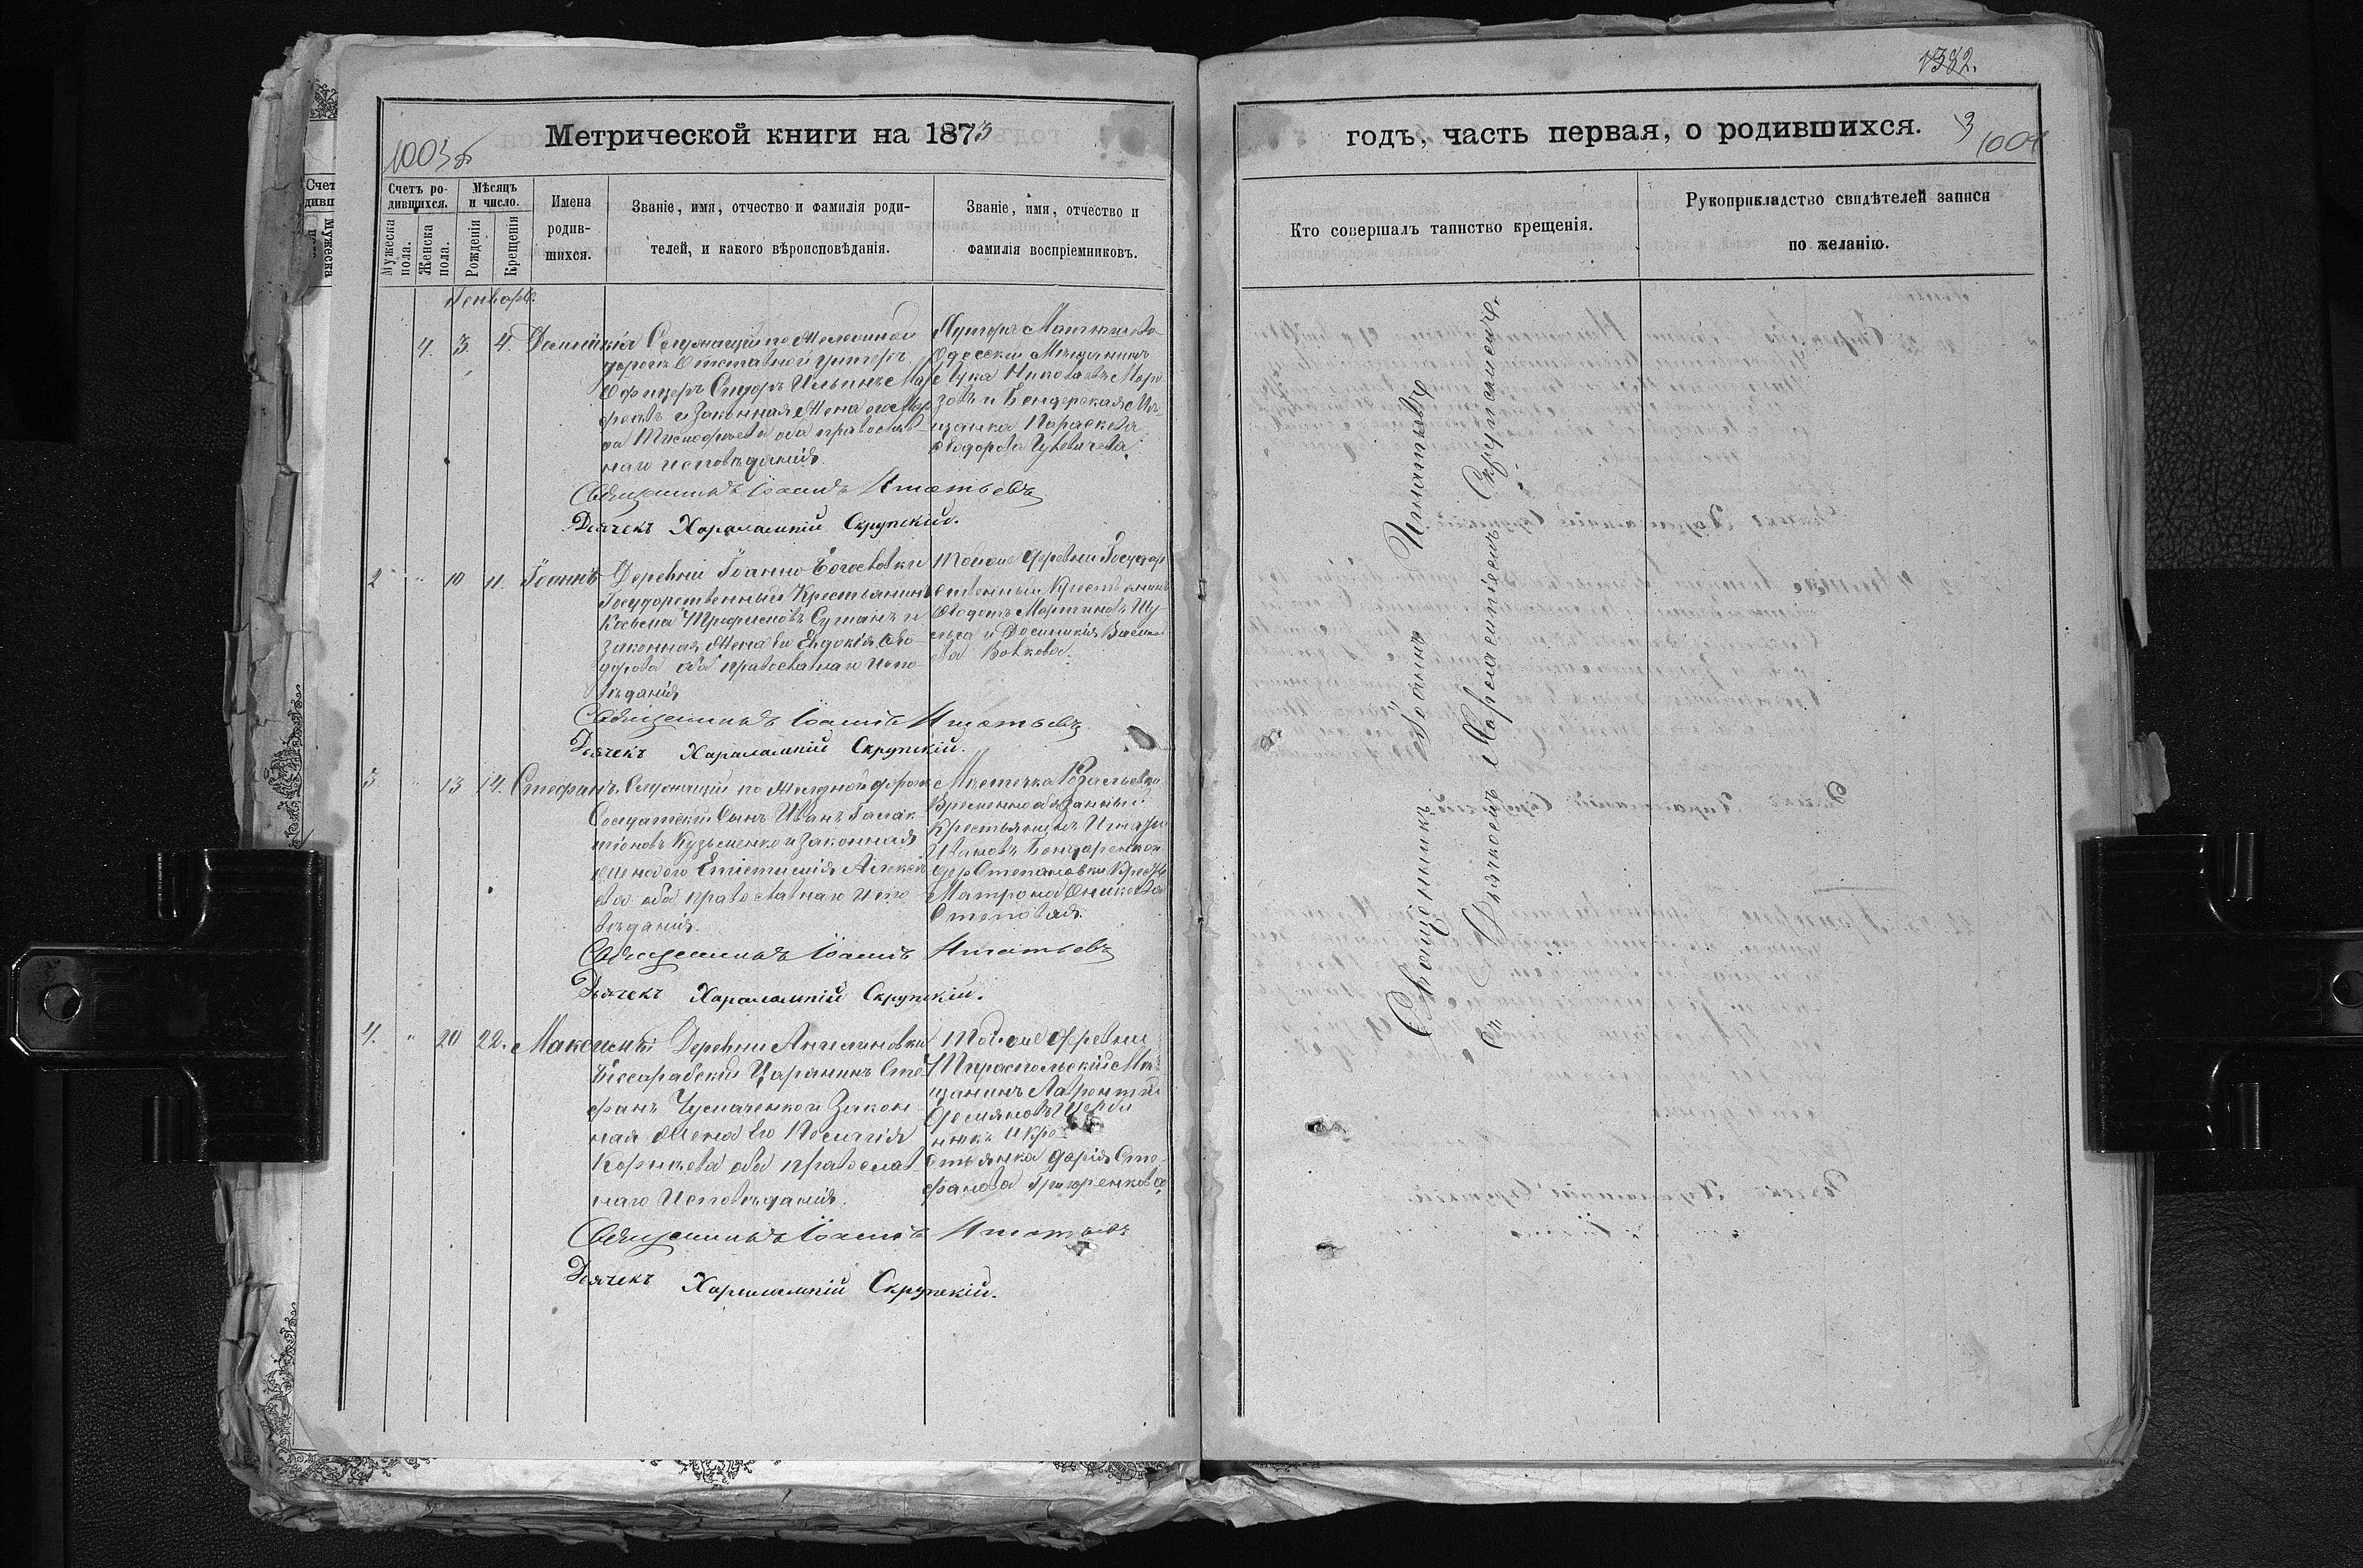 1003 б
Метрической книги на 1873
Счетъ ро-
дившихся.
Мужеска
пола.
Женска
пола.
Мѣсяцъ
и число.
Рожденія
Крещенія
Имена
родив-
шихся.
Званіе, имя, отчество и фамилія роди-
телей, и какого вѣроисповѣданія.
Званіе, имя, отчество и
фамилія воспріемниковъ.
Генварь.
4. 3. 4.
Служащій по Желѣзной
дорогѣ Отставной Унтеръ
Офицеръ Сидоръ Ильинъ
и Законная Жена его
оба православ-
наго исповѣданія
Хутора
Одесскій Мѣщанинъ
Лука Николаевъ Моро
зовъ и Бендерская Мѣ
щанка Параскева
Ѳеодорова
Священникъ Іоаннъ Игнатьевъ
Дьячекъ Харалампій Скрупскій.
2 " 10 11. Іоаннъ
Деревни Іоанно-Богословки
Государственный Крестьянинъ
Косьма Трофимовъ и
Законная Жена его Евдокія Ѳео
дорова оба православнаго испо
вѣданія
Той же деревни Государ
ственный Крестьянинъ
Ѳедотъ Мартиновъ
и Домникія Василі
ева Вовкова.
Священникъ Іоаннъ Игнатьевъ
Дьячекъ Харалампій Скрупскій.
3 " 13 14. Стефанъ.
Служащій по Желѣзной дорогѣ
Солдатскій Сынъ Иванъ Галак
тіоновъ Кузьменко и Законная
Жена его Епистимія Алексѣ
ева оба православнаго испо
вѣданія.
Мѣстечка
Временно обязанный
Крестьянинъ
Ивановъ Бондаренко и
дер. Степановки Крест
Матрона
Степовая.
Священникъ Іоаннъ Игнатьевъ
Дьячекъ Харалампій Скрупскій.
4. " 20 22. Максимъ
Деревни Ангелиновки
Бессарабскій Царанинъ Сте
фанъ Чумаченко и Закон
ная Жена его Пелагія
Корнѣева оба православ
наго исповѣданія.
Той же деревни
Тираспольскій Мѣ
щанинъ Лаврентій
и Кре
стьянка Дарія Сте
фанова Григоренкова
Священникъ Іоаннъ Игнатьевъ
Дьячекъ Харалампій Скрупскій.
1382.
годъ, часть первая, о родившихся.
3
1004
Кто совершалъ таинство крещенія.
Рукоприкладство свидѣтелей записи
по желанію.
Священникъ Іоаннъ Игнатьевъ
съ Дьячкомъ Харалампіемъ Скрупскимъ.